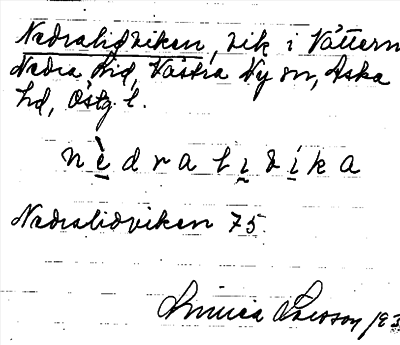 Nedralidviken, vik i Vättern
Nedra Lid, Västra Ny sn, Aska
hd, Östg. l.
n è d r a l i v i k a
Nedralidviken 75.
Linnea Olsson